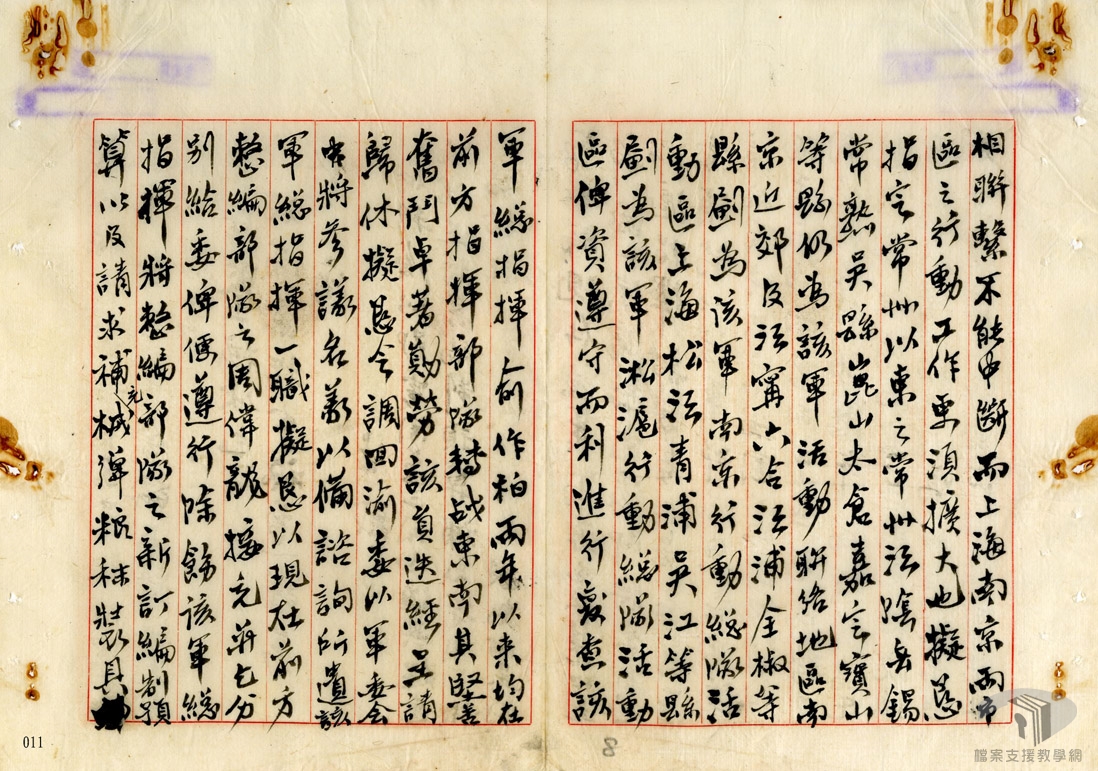 相聯繫不能中斷而上海南京兩市
區之行動工作更須擴大也擬懇
指定常州以東之常州江陰無錫
常熟吳縣崑山太倉嘉定寶山
等縣仍為該軍活動聯絡地區南
京近郊及江寧六合江浦全椒等
縣劃為該軍南京行動總隊活
動區上海松江青浦吳江等縣
劃為該軍淞滬行動總隊活動
區俾資遵守而利進行最查該
軍總指揮俞作柏兩年以來均在
前方指揮部隊轉战東南其堅苦
奮鬥卓著勛勞該員迭經呈請
歸休擬懇令調回渝委以軍委会
中將參議名義以備諮詢所遺該
軍總指揮一職擬懇以現在前方
整編部隊之周偉龍接充并乞分
別給委俾便遵行除飭該軍總
指揮將整編部隊之新訂編制預
算以及請求補充械彈粮秣裝具
8
011
檔案支援教學網